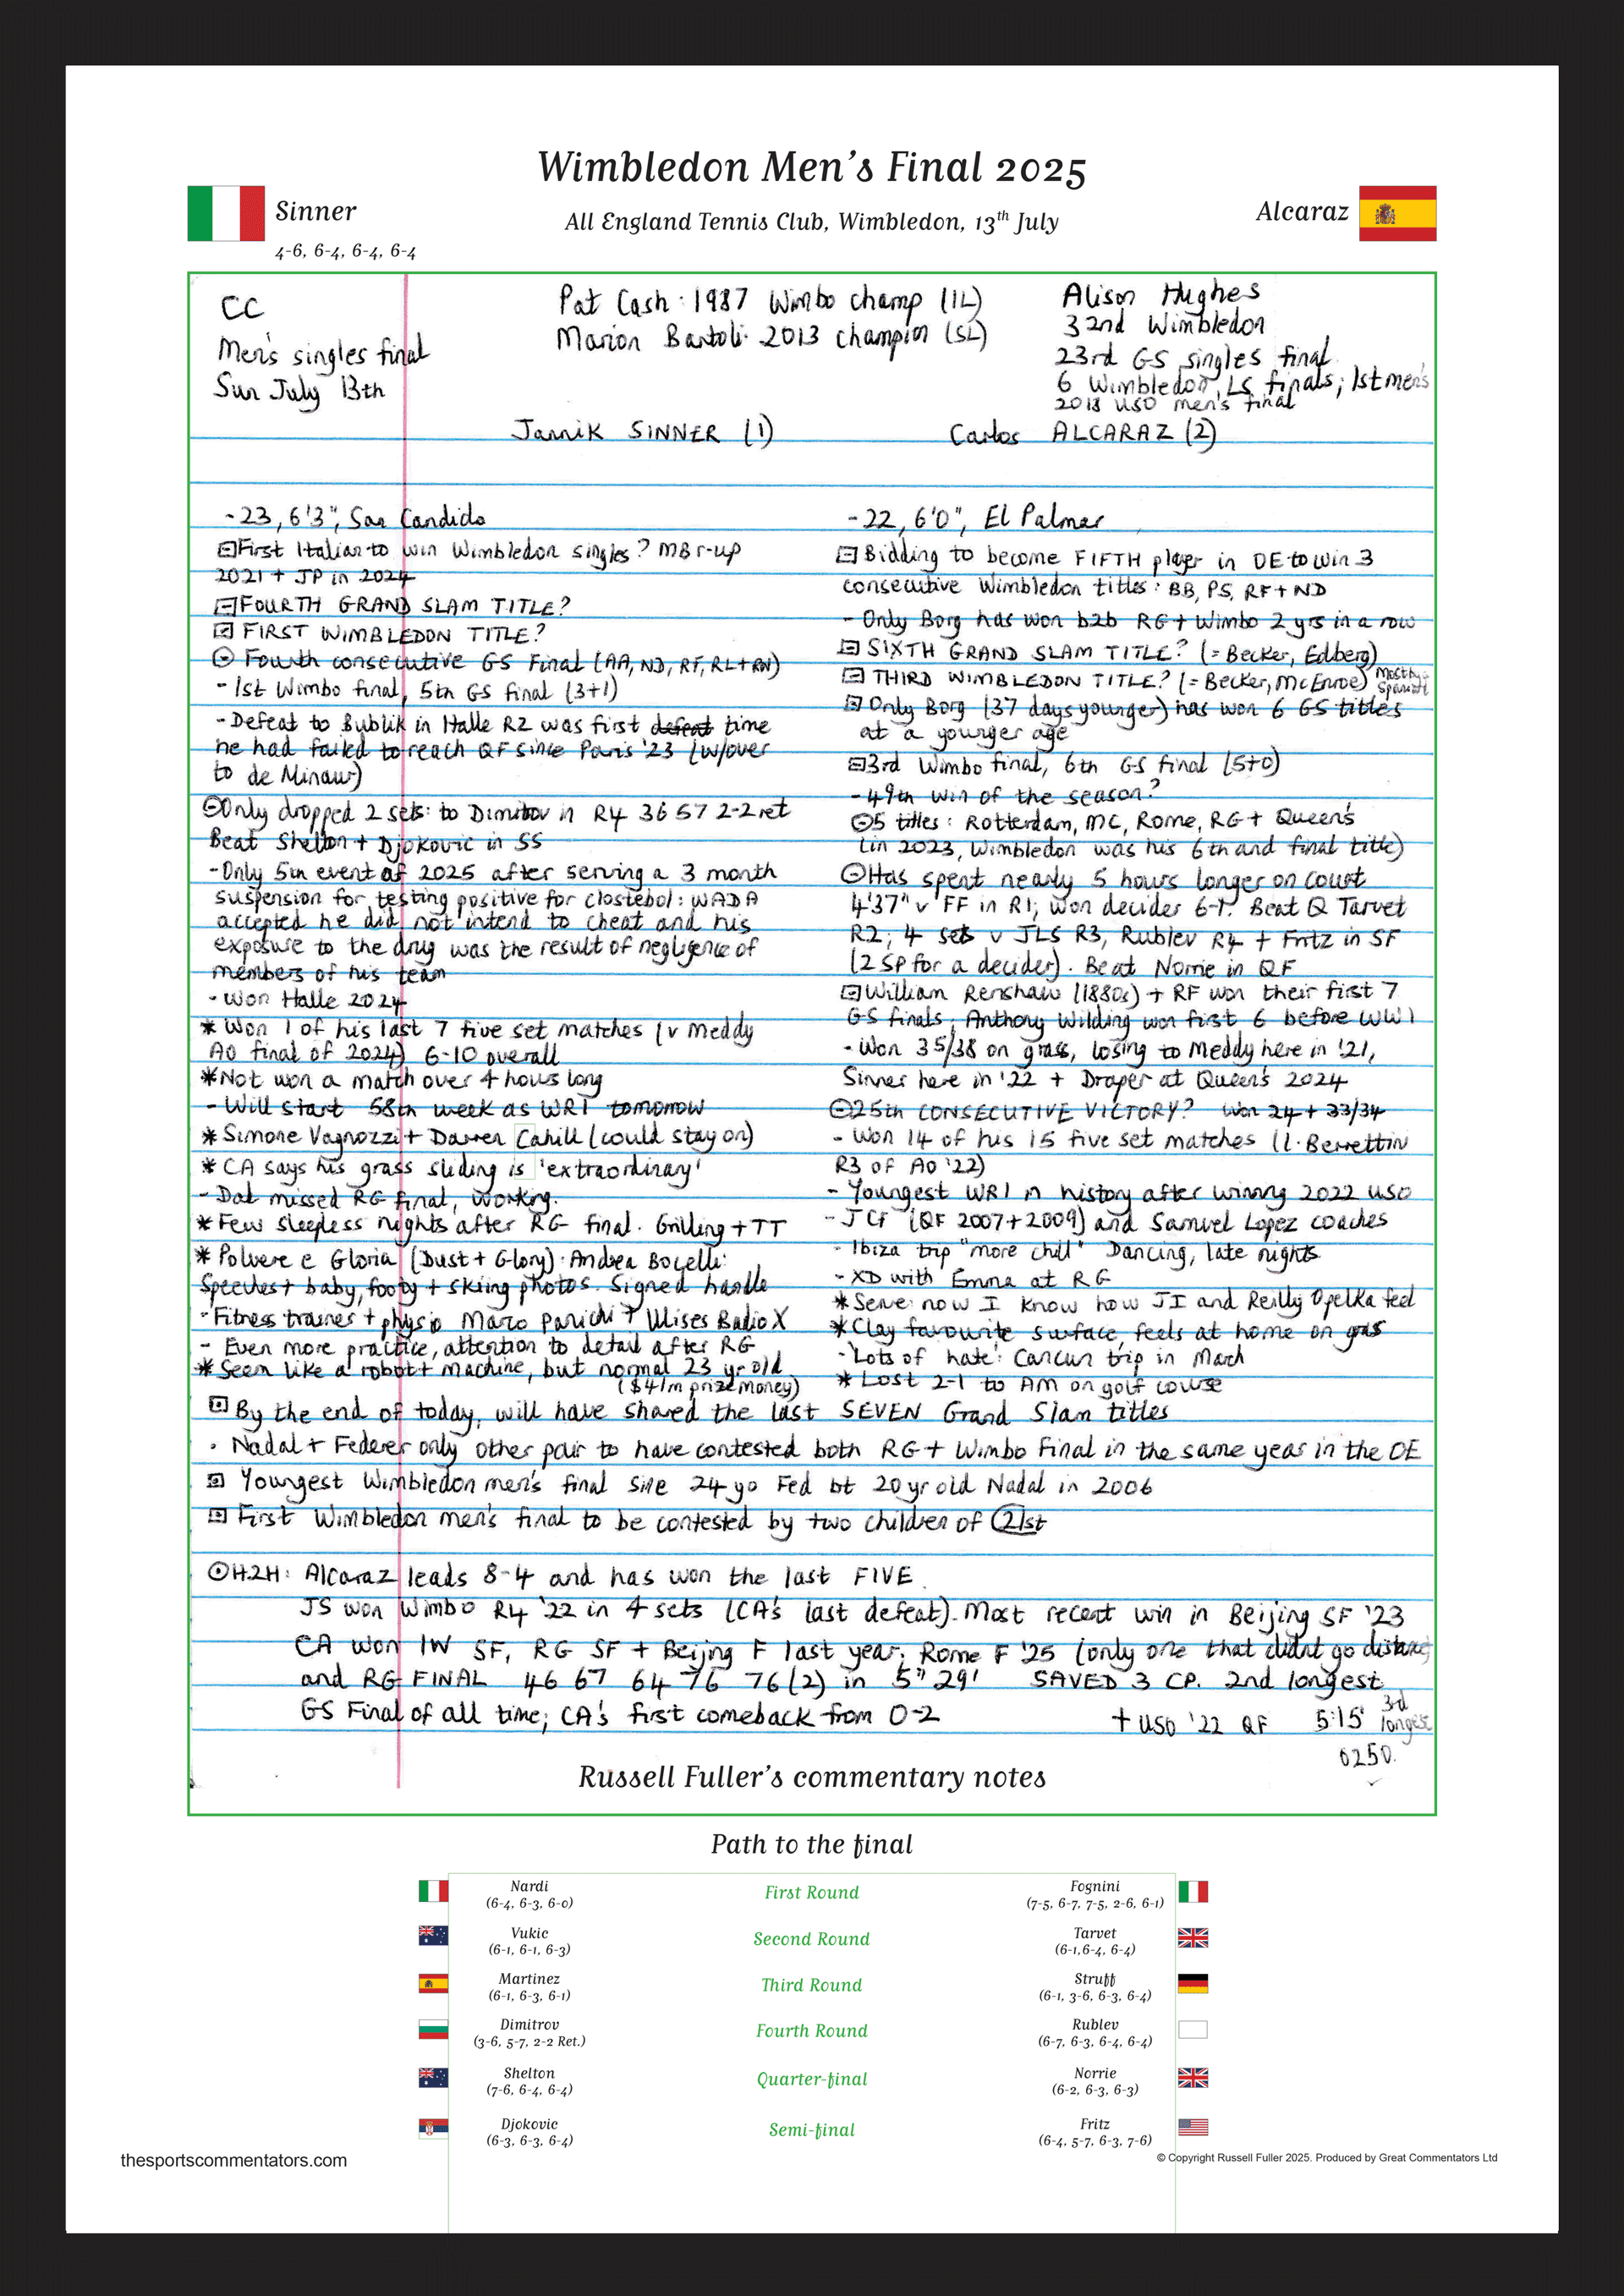 Wimbledon Men's Final 2025
Sinner
All England Tennis Club, Wimbledon, 13th July
Alcaraz
4-6, 6-4, 6-4, 6-4
CC
Men's singles final
Sun July 13th
Pat Cash: 1987 Wimbo champ (IL)
Marion Bartoli: 2013 champion (SL)
Alison Hughes
32nd Wimbledon
23rd GS singles final
6 Wimbledon LS finals; 1st men's
2018 USO men's final
Jannik SINNER (1)
Carlos ALCARAZ (2)
- 23, 6'3", San Candido
First Italian to win Wimbledon singles? MB r-up
2021 + JP in 2024
FOURTH GRAND SLAM TITLE?
FIRST WIMBLEDON TITLE?
Fourth consecutive GS Final (AA, ND, RF, RL + RN)
- 1st Wimbo final, 5th GS final (3+1)
- Defeat to Bublik in Halle R2 was first defeat time
he had failed to reach QF since Paris '23 (w/over
to de Minaur)
Only dropped 2 sets: to Dimitrov in R4 36 57 2-2 ret
Beat Shelton + Djokovic in SS
- Only 5th event of 2025 after serving a 3 month
suspension for testing positive for clostebol: WADA
accepted he did not intend to cheat and his
exposure to the drug was the result of negligence of
members of his team
- Won Halle 2024
* Won 1 of his last 7 five set matches (v Meddy
AO final of 2024) 6-10 overall
* Not won a match over 4 hours long
- Will start 58th week as WR1 tomorrow
* Simone Vagnozzi + Darren Cahill (could stay on)
* CA says his grass sliding is 'extraordinary'
- Dad missed RG final, working.
* Few sleepless nights after RG final. Grilling + TT
* Polvere e Gloria (Dust + Glory): Andrea Bocelli:
Speeches + baby, footy + skiing photos. Signed handle
- Fitness trainer + physio Marco Panichi + Ulises Badio X
- Even more practice, attention to detail after RG
* Seen like a robot + machine, but normal 23 yr old
($41m prize money)
- 22, 6'0", El Palmar
Bidding to become FIFTH player in OE to win 3
consecutive Wimbledon titles: BB, PS, RF + ND
- Only Borg has won b2b RG + Wimbo 2 yrs in a row
SIXTH GRAND SLAM TITLE? (= Becker, Edberg)
THIRD WIMBLEDON TITLE? (= Becker, McEnroe) Most by Spaniard
Only Borg (37 days younger) has won 6 GS titles
at a younger age
3rd Wimbo final, 6th GS final (5+0)
- 49th win of the season?
5 titles: Rotterdam, MC, Rome, RG + Queen's
(in 2023, Wimbledon was his 6th and final title)
Has spent nearly 5 hours longer on court
4'37" v FF in R1; won decider 6-1. Beat Q Tarvet
R2; 4 sets v JLS R3, Rublev R4 + Fritz in SF
(2 SP for a decider). Beat Norrie in QF
William Renshaw (1880s) + RF won their first 7
GS finals; Anthony Wilding won first 6 before WW1
- Won 35/38 on grass, losing to Meddy here in '21,
Sinner here in '22 + Draper at Queen's 2024
25th CONSECUTIVE VICTORY? Won 24 + 33/34
- Won 14 of his 15 five set matches (l. Berrettini
R3 of AO '22)
- Youngest WR1 in history after winning 2022 USO
- JCF (QF 2007 + 2009) and Samuel Lopez coaches
- Ibiza trip "more chill" Dancing, late nights
- XD with Emma at RG
* Serve: now I know how JI and Reilly Opelka feel
* Clay favourite surface, feels at home on grass
- 'Lots of hate': Cancun trip in March
* Lost 2-1 to AM on golf course
By the end of today, will have shared the last SEVEN Grand Slam titles
. Nadal + Federer only other pair to have contested both RG + Wimbo Final in the same year in the OE
Youngest Wimbledon men's final since 24 yo Fed bt 20 yr old Nadal in 2006
First Wimbledon men's final to be contested by two children of 21st
H2H: Alcaraz leads 8-4 and has won the last FIVE
JS won Wimbo R4 '22 in 4 sets (CA's last defeat). Most recent win in Beijing SF '23
CA won IW SF, RG SF + Beijing F last year; Rome F '25 (only one that didn't go distance)
and RG FINAL 46 67 64 76 76(2) in 5" 29' SAVED 3 CP. 2nd longest
GS Final of all time; CA's first comeback from 0-2
+ USO '22 QF 5:15 3rd longest
0250.
Russell Fuller's commentary notes
Path to the final
Nardi
(6-4, 6-3, 6-0)
First Round
Fognini
(7-5, 6-7, 7-5, 2-6, 6-1)
Vukic
(6-1, 6-1, 6-3)
Second Round
Tarvet
(6-1,6-4, 6-4)
Martinez
(6-1, 6-3, 6-1)
Third Round
Struff
(6-1, 3-6, 6-3, 6-4)
Dimitrov
(3-6, 5-7, 2-2 Ret.)
Fourth Round
Rublev
(6-7, 6-3, 6-4, 6-4)
Shelton
(7-6, 6-4, 6-4)
Quarter-final
Norrie
(6-2, 6-3, 6-3)
Djokovic
(6-3, 6-3, 6-4)
Semi-final
Fritz
(6-4, 5-7, 6-3, 7-6)
thesportscommentators.com
© Copyright Russell Fuller 2025. Produced by Great Commentators Ltd